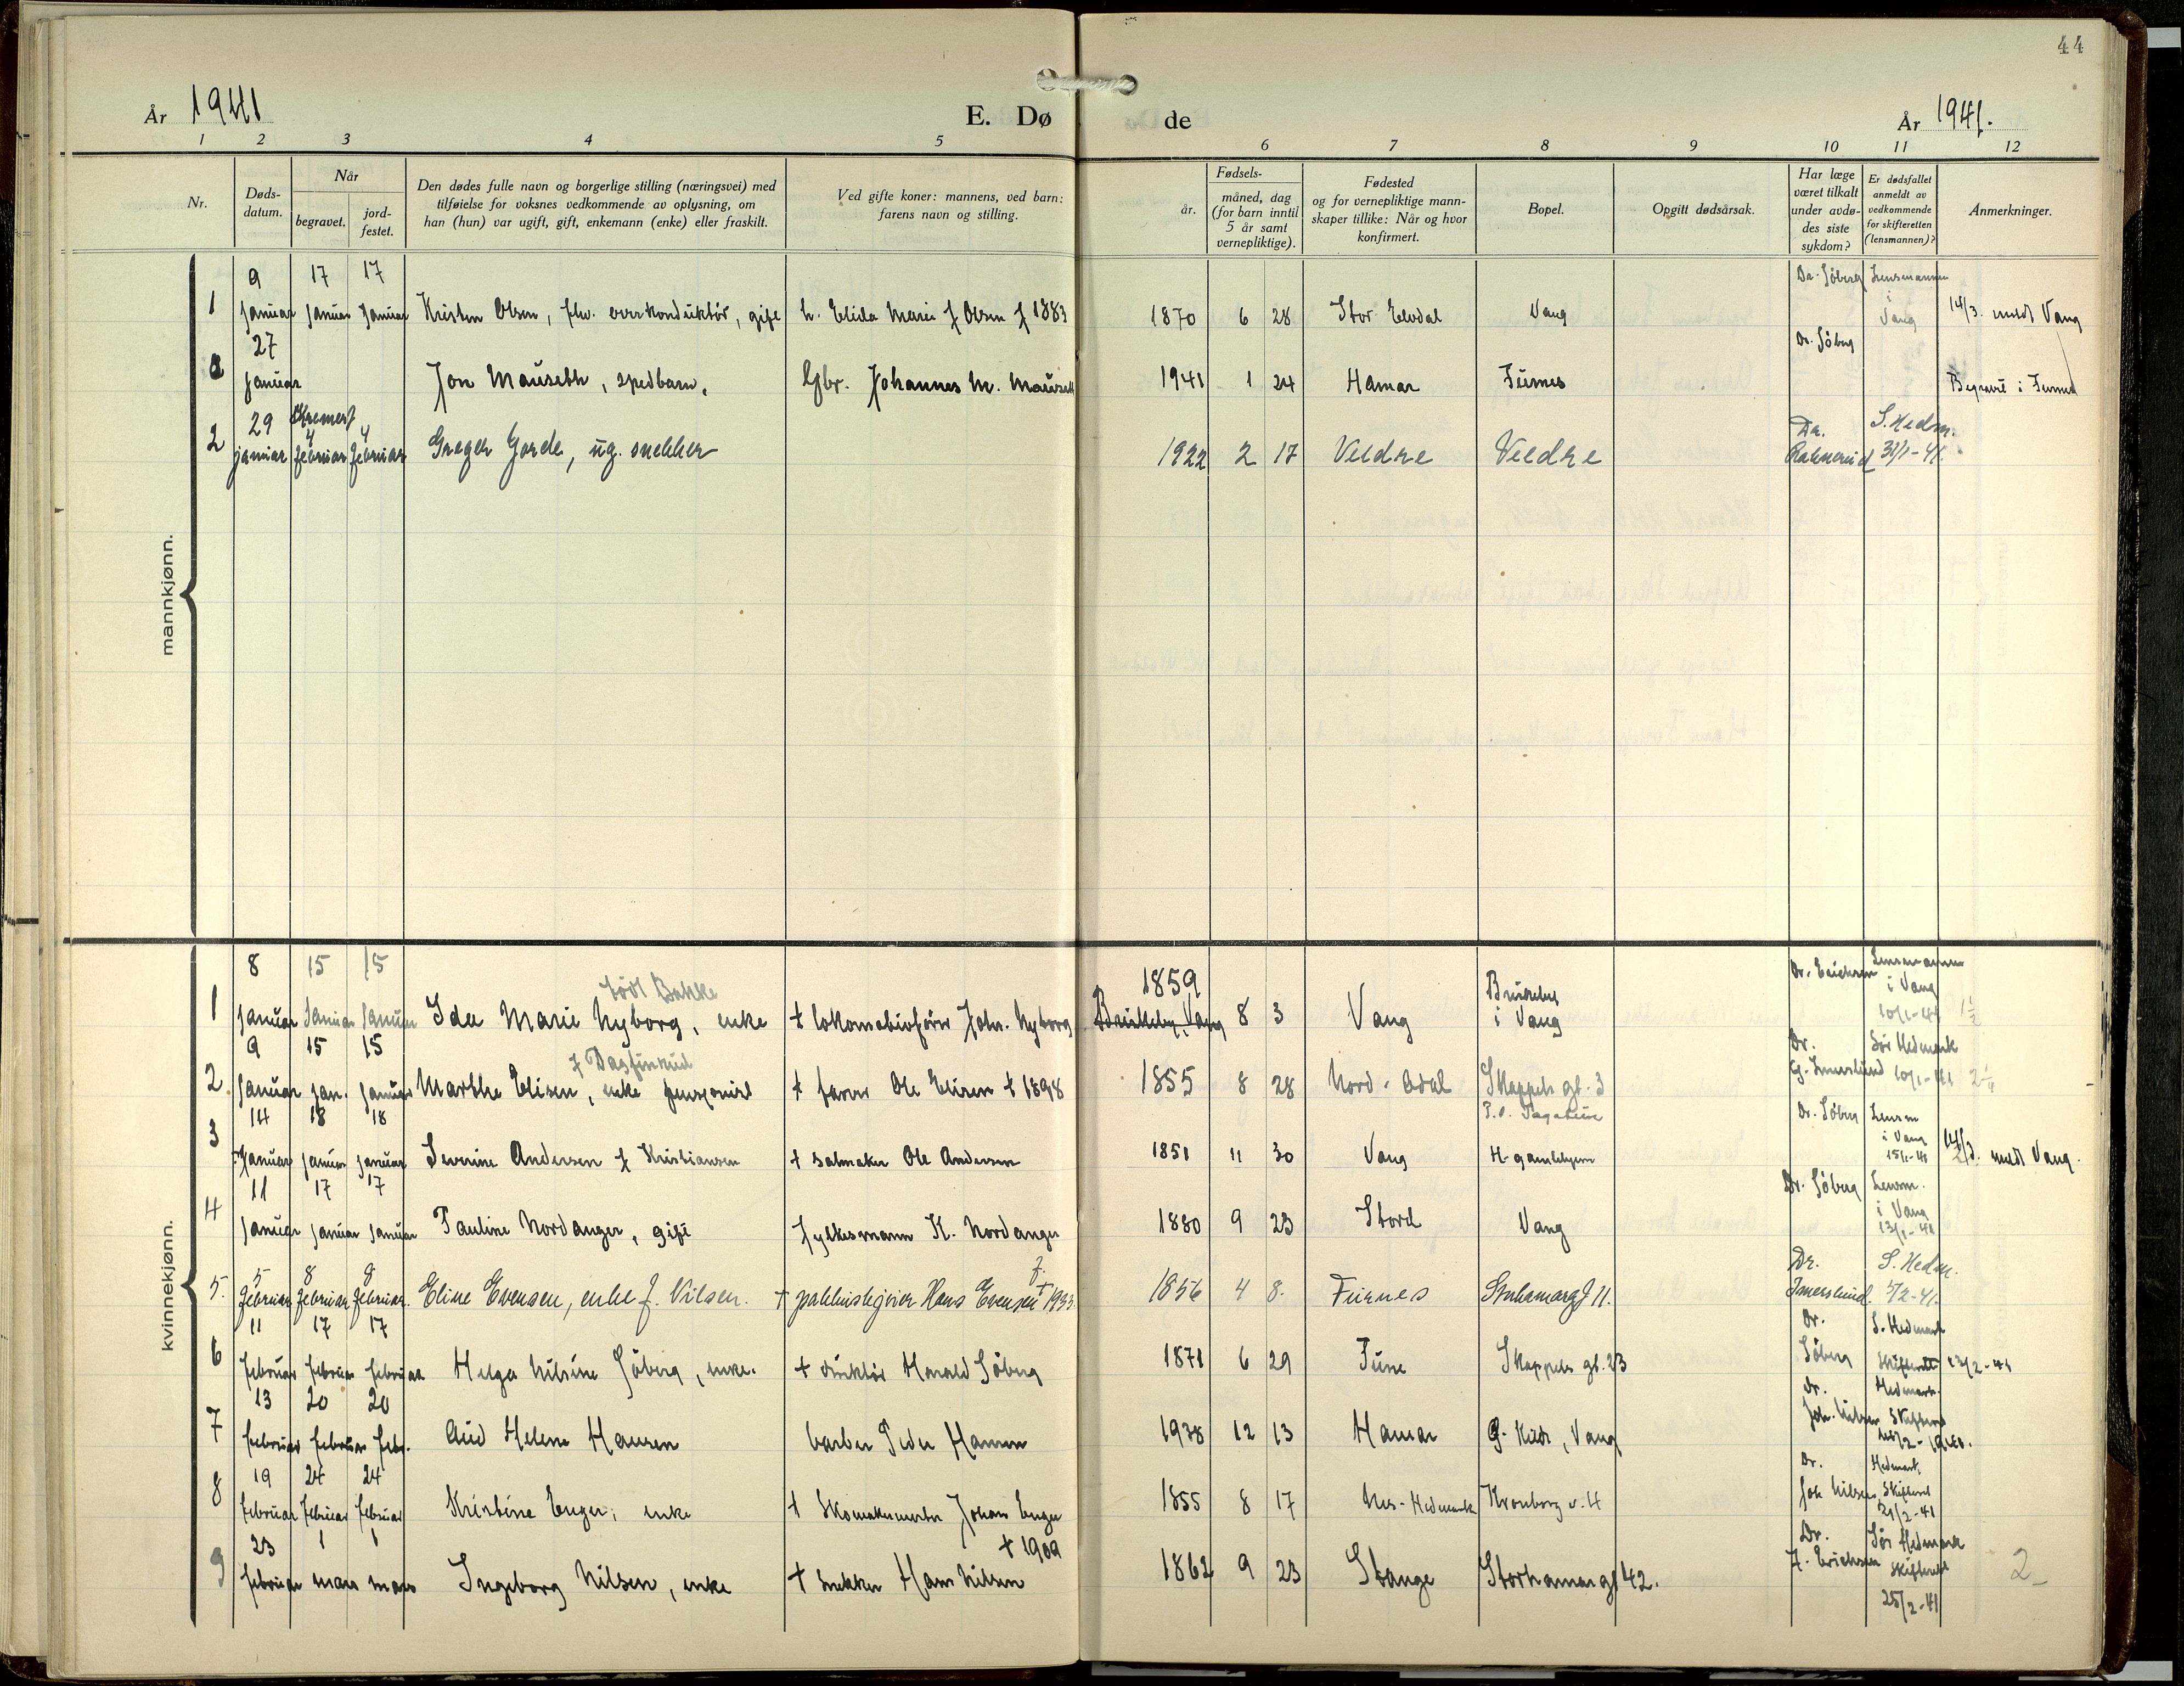 44
År 1941
E. Dø
de
År 1941.
1 2 3 4 5 6 7 8 9 10 11 12
Nr.
Døds-
datum.
Når
begravet.
jord-
festet.
Den dødes fulle navn og borgerlige stilling (næringsvei) med
tilføielse for voksnes vedkommende av oplysning, om
han (hun) var ugift, gift, enkemann (enke) eller fraskilt.
Ved gifte koner: mannens, ved barn:
farens navn og stilling.
Fødsels-
år.
måned, dag
(for barn inntil
5 år samt
vernepliktige).
Fødested
og for vernepliktige mann-
skaper tillike: Når og hvor
konfirmert.
Bopel.
Opgitt dødsårsak.
Har læge
været tilkalt
under avdø-
des siste
sykdom?
Er dødsfallet
anmeldt av
vedkommende
for skifteretten
(lensmannen)?
Anmerkninger.
mannkjønn.
9 17 17 Dr. Söberg Lensmannen
i
1 januar januar januar Kristen Olsen, fhv. overkonduktör, gift h. Elida Marie f Olsen f 1883 1870 6 28 Stor Elvdal Vang Vang 14/3. meldt Vang
27 Dr. Söberg
januar Jon Mausethh, spedbarn, Gbr. Johannes M. Mauseth 1941 1 24 Hamar Furnes Begravet i Furnes
29 Kremert
4 4 Dr. S. Hedm.
2 januar februar februar Greger Gjerde, ug. snekker 1922 2 17 Veldre Veldre 31/1-41.
kvinnekjønn.
8 15 15 född Bakke 1859 Bruskeby Dr. Erichsen Lensmannen
i Vang
1 januar januar januar Ida Marie Nyborg, enke † lokomotivförer Johs. Nyborg Bruskeby, Vang 8 3 Vang i Vang 10/1-41 1½
9 15 15 f Dagfinrud Dr. Sör Hedmark
2. januar jan. januar Marthe Elisen, enke pensjonist † farver Ole Elisen † 1898 1855 8 28 Nord-Odal Skappels gt. 3 G. Imerslund 10/1-41
14 18 18 Dr. Söberg Lensm
i Vang
3 januar januar januar Severine Andersen f Kristiansen † salmaker Ole Andersen 1851 11 30 Vang H-gamlehjem 15/1-41 14/3. meldt Vang.
11 17 17 Dr. Söberg Lensm.
i Vang
4 januar januar januar Pauline Nordanger, gift fylkesmann K. Nordanger 1880 9 23 Stord Vang 13/1-41
5 8 8 Dr. S. Hedm.
5. februar februar februar. Eline Evensen, enke f. Nilsen. † pakkhusbejener Hans Evensen † 1933. 1856 4 8. Furnes Storhamargt 11. Imerslund. 5/2-41.
11 17 17 Dr. S. Hedmark
6 februar februar februar Helga Nilsine Söberg, enke. † direktör Harald Söberg 1871 6 29 Tune Skappels gt. 23 Söberg Skifterett 13/2-41
13 20 20 Dr. Hedmark.
7 februar februar febr. Aud Helene Hansen barber Peder Hansen 1938 12 13 Hamar Vang Joh. Nilsen Skifterett
19 24 24 Dr. Hedmark
8 februar februar februar Kristine Enger, enke † Skomakermester Johan Enger 1855 8 17 Nes-Hedmark Kronborg v. 4 Joh Nilsen Skifterett
21/2-41
23 1 1 † 1909 Dr. Sör Hedmark
9 februar mars mars Ingeborg Nilsen, enke † Snekker Hans Nilsen 1862 9 23 Stange Storhamargt 42. Erichsen Skifterett 2
25/2-41